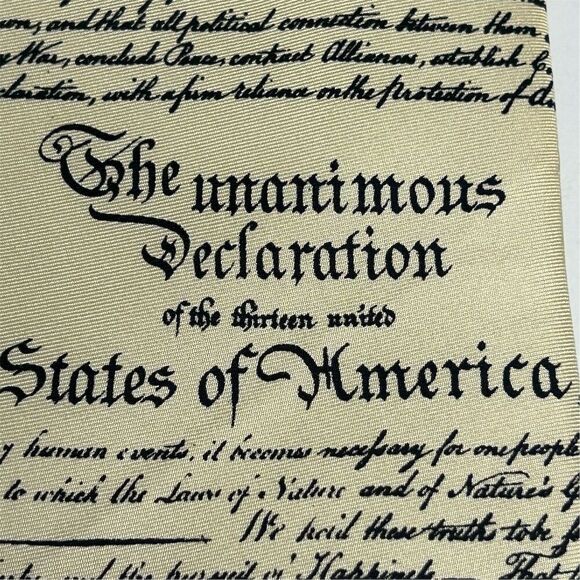 and that all political connection between them
War, conclude Peace, contract Alliances, establish
with a firm reliance on the Protection of
The unanimous
Declaration
of the thirteen united
States of America
human events, it becomes necessary for one people
to which the Laws of Nature and of Nature's G
We hold these truths to be
and the pursuit of Happiness — That